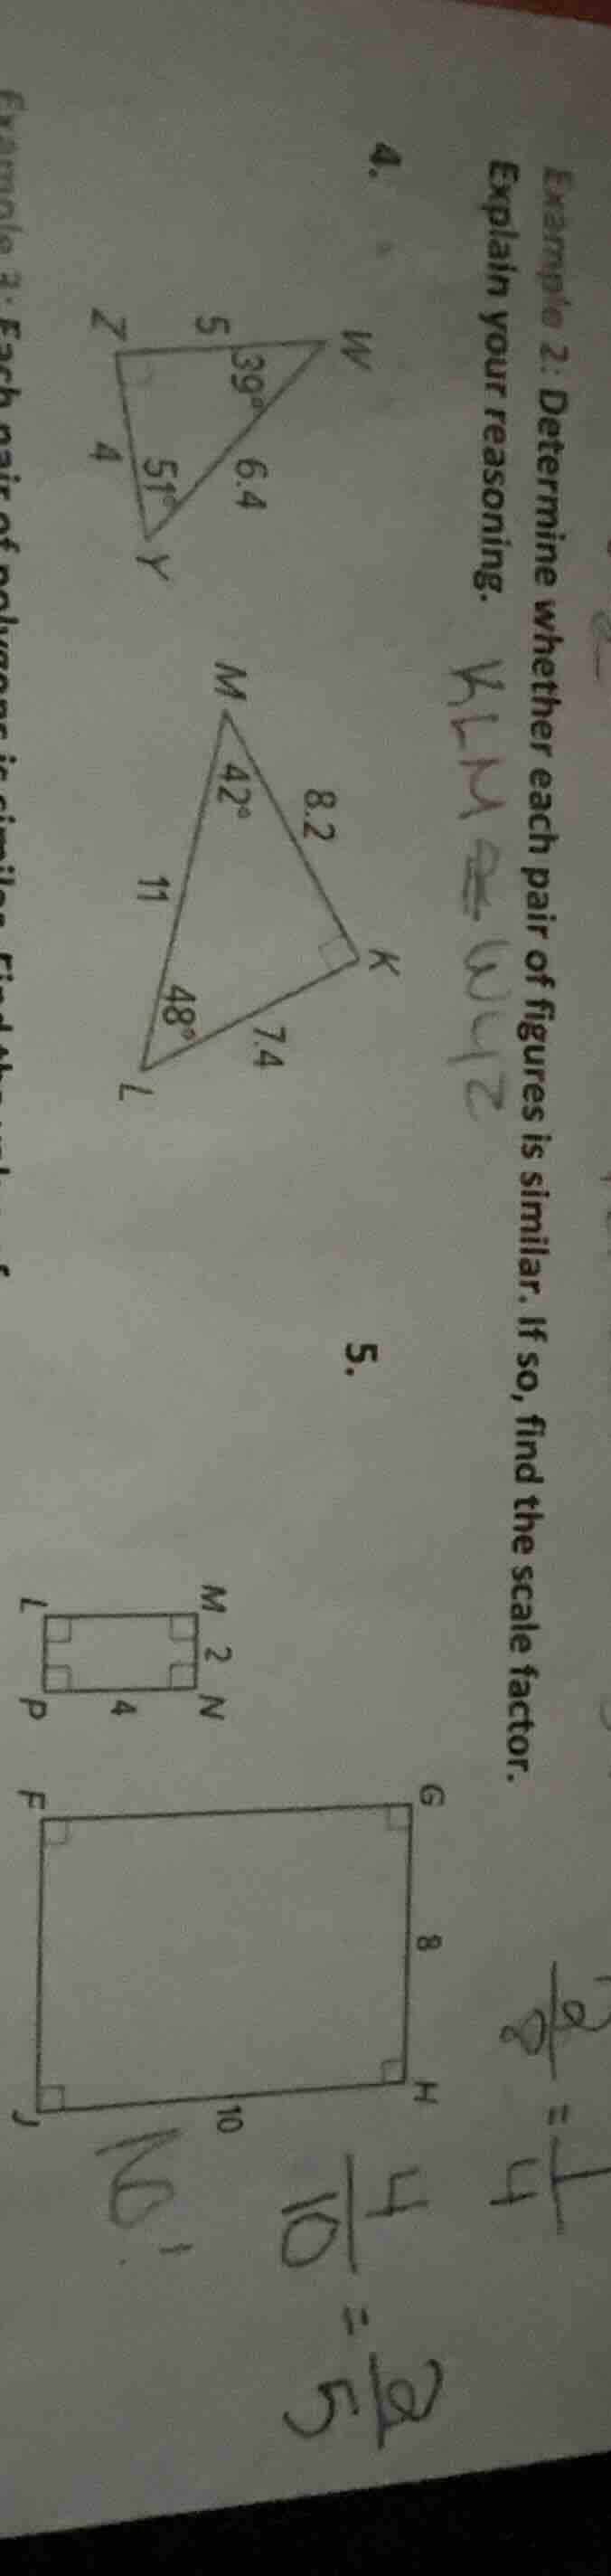 Example 2: Determine whether each pair of figures is similar. If so, find the scale factor.
Explain your reasoning.
KLM ≅ WYZ
2/8 = 1/4
4.
W
5
39°
6.4
51°
Z
4
Y
K
8.2
7.4
M
42°
48°
11
L
5.
M 2 N
4
L P
G 8 H
10
F J
4/10 = 2/5
No
Example 3: Each pair of polygons is similar. Find the